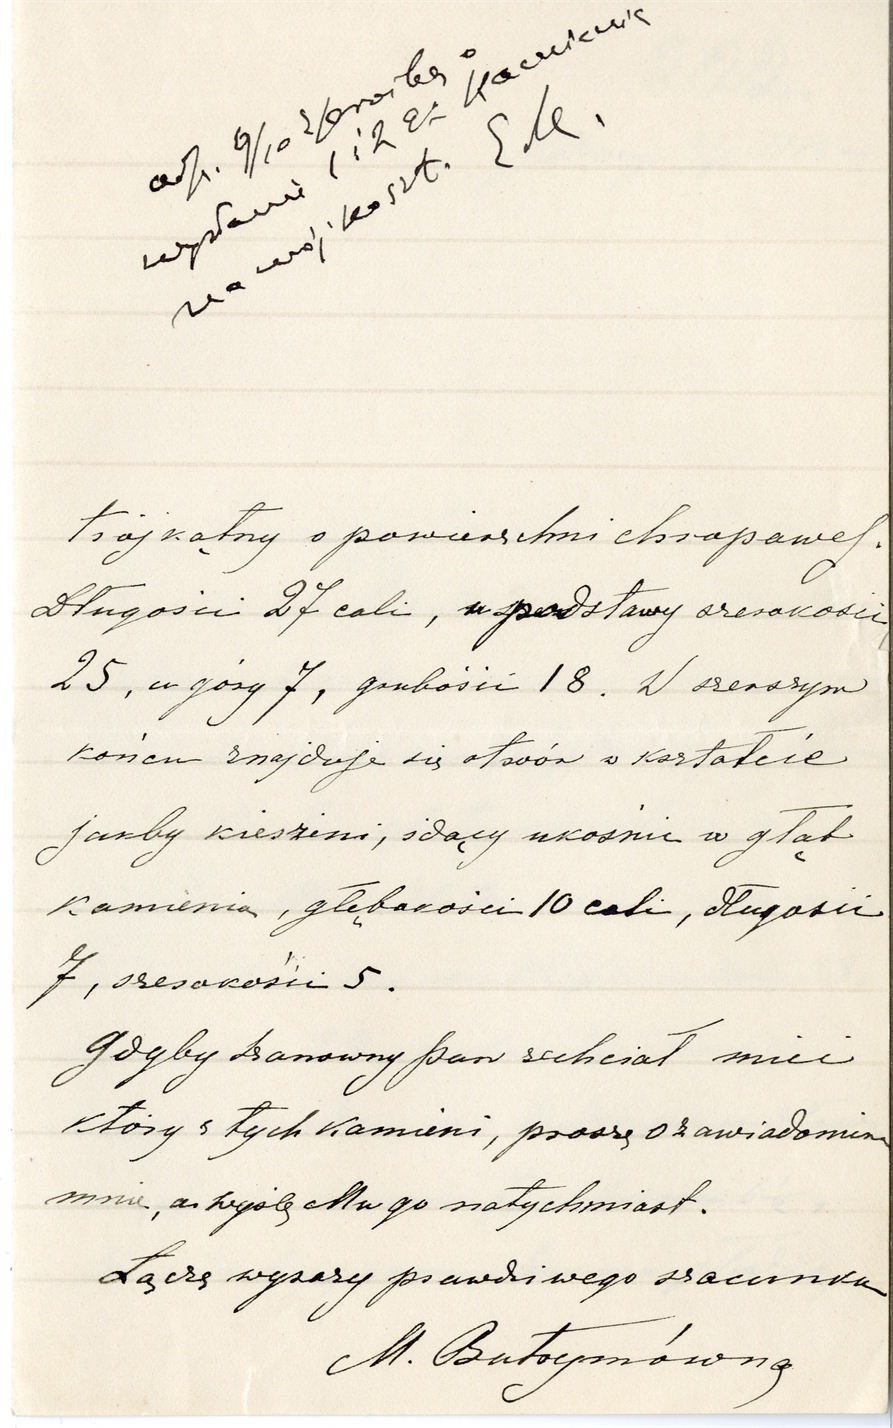 odp. 9/10 z prośbą o
wysłanie 1 i 2 Kamienia
na mój koszt. EM.
trójkątny o powierzchni chropawej.
Długości 27 cali, u podstawy szerokości
25, u góry 7, grubości 18. W szerszym
końcu znajduje się otwór w kształcie
jakby kieszeni, idący ukośnie w głąb
kamienia, głębokości 10 cali, długości
7, szerokości 5.
Gdyby Szanowny Pan zechciał mieć
który z tych kamieni, proszę o zawiadomien
mnie, a wyślę Mu go natychmiast.
Łączę wyrazy prawdziwego szacunku
M. Butrymówna